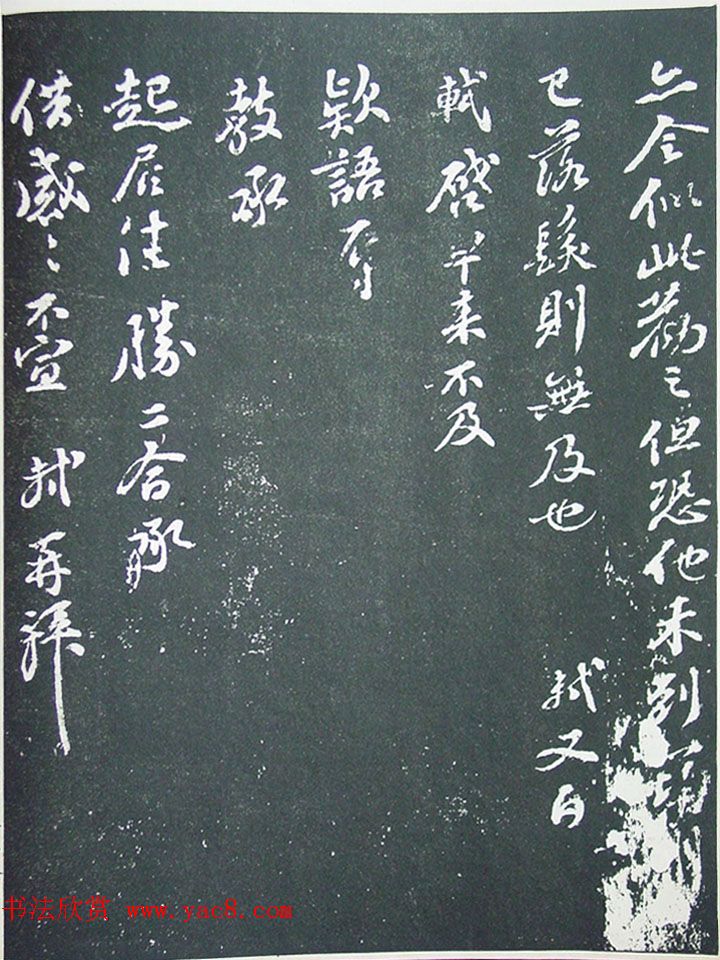 亦令似此勸之但恐他未到
已落髮則無及也 軾又白
軾啓早來不及
款語辱
教承
起居佳勝二承
感〻不宣 軾再拜
书法欣赏 www.yac8.com